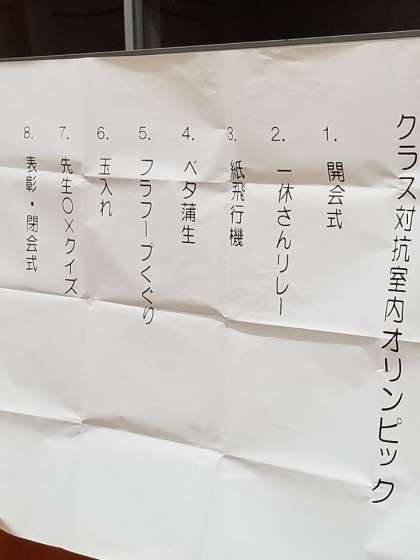 クラス対抗室内オリンピック
1. 開会式
2. 一休さんリレー
3. 紙飛行機
4. ベタ蒲生
5. フラフープくぐり
6. 玉入れ
7. 先生〇×クイズ
8. 表彰・閉会式